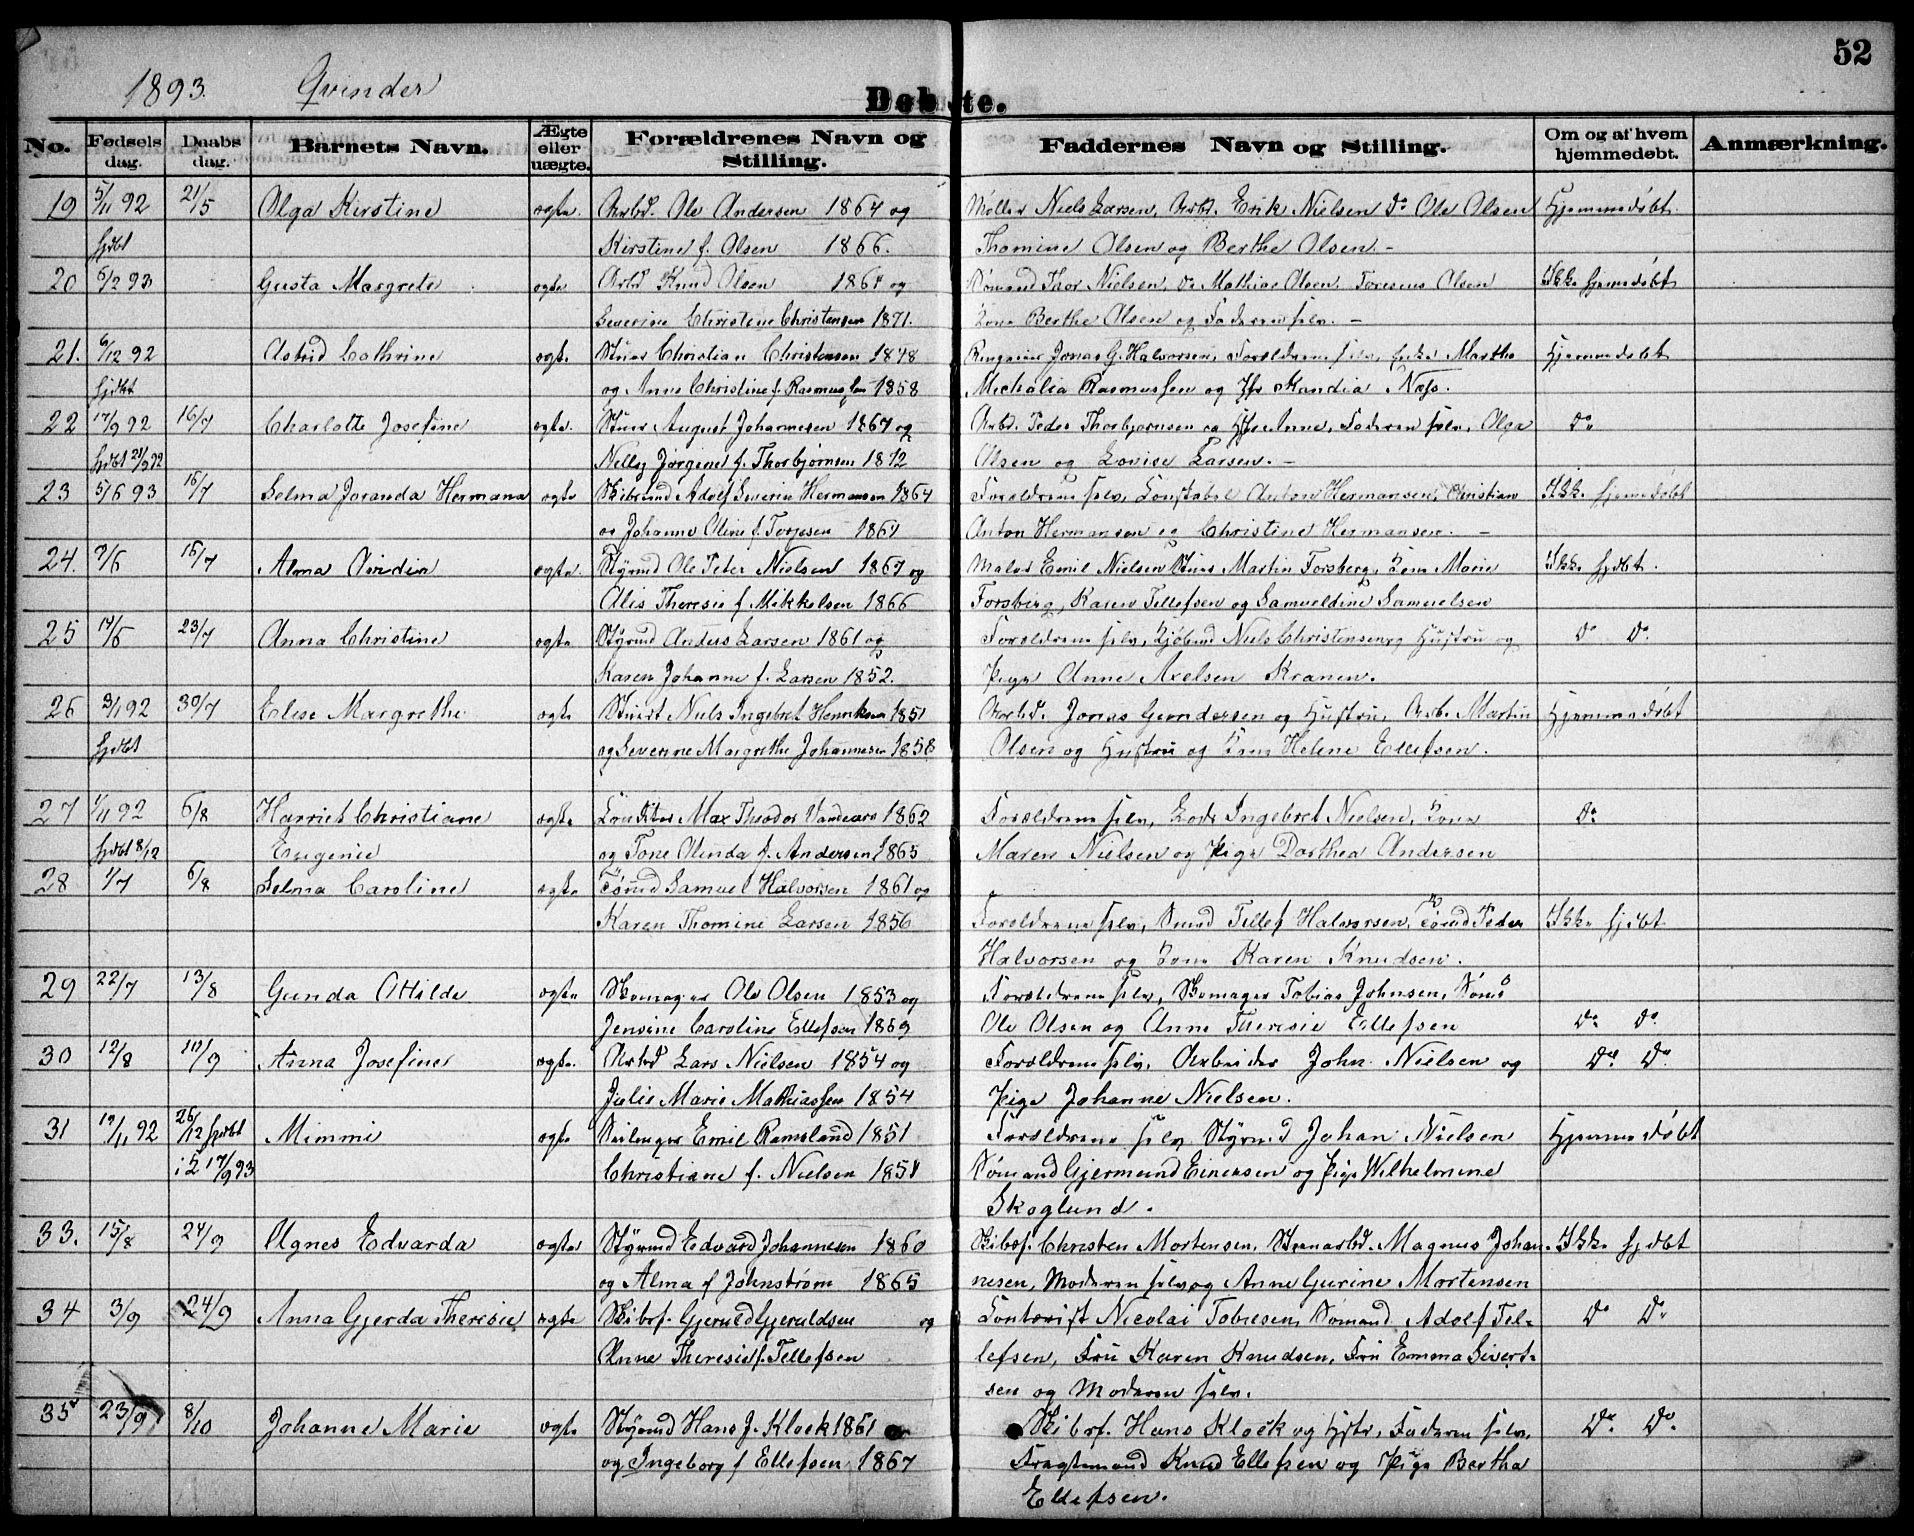 52
1893. Qvinder
Døbte.
No. Fødsels dag. Daabs dag. Barnets Navn. Ægte eller uægte. Forældrenes Navn og Stilling. Faddernes Navn og Stilling. Om og af hvem hjemmedøbt. Anmærkning.
19 5/11 92 21/5 Olga Kirstine ægte. Arbd. Ole Andersen 1864 og Møller Niels Larsen, Arbd. Erik Nielsen do Ole Olsen Hjemmedøbt
hjdbt Kirstine f. Olsen 1866. Thomine Olsen og Berthe Olsen. -
20 6/2 93 Gusta Margrete ægte Arbd Knud Olsen 1864 og Sømand Thor Nielsen, do Mathias Olsen, Olsen Ikke hjemedøbt
Severine Christine Christensen 1871. Kone Berthe Olsen og Faderen selv. -
21. 6/12 92 Astrid Cathrine ægte Stuer Christian Christensen 1848 Jonas G. Halvorsen, Forældrene selv, Enke Marthe Hjemmedøbt
hjdbt og Anne Christine f. Rasmussen 1858 Michalia Rasmussen og Skandia Næss.
22 17/9 92 16/7 Charlotte Josefine ægte. Stuer August Johannesen 1867 og Arbd. Peder Thorbjørnsen og Anne, Faderen selv, Olga do
hjdbt 21/9 92 Nelly Jørgine f. Thorbjørnsen 1872 Olsen og Lovise Larsen. -
23 5/6 93 16/7 Selma Joranda Hermana ægte Skibsmd Adolf Severin Hermansen 1864 Forældrene selv, Konstabel Anton Hermansen, Christian Ikke hjemedøbt
og Johanne Oline f. Terjesen 1861 Anton Hermansen og Christine Hermansen. -
24. 7/6 16/7 Alma ægte. Styrmd Ole Peter Nielsen 1867 og Maler Emil Nielsen Stuer Martin Forsberg, Kone Marie Ikke hjdbt.
Alis Theresie f Mikkelsen 1866 Forsberg, Karen Tellefsen og Samueldine Samuelsen
25 14/6 23/7 Anna Christine ægte Styrmd Anders Larsen 1861 og Forældrene selv, Niels Christensen, Hustru og do do
Karen Johanne f. Larsen 1852. Pige Anne Axelsen Kranen.
26 3/1 92 30/7 Elise Margrethe ægte Niels Ingebret Henriksen 1851 Arbd. Jonas Gundersen og Hustru, Arb. Martin Hjemmedøbt
hjdbt og Severine Margrethe Johannesen 1858 Olsen og Hustru og Kone Helene Ellefsen.
27 1/11 92 6/8 Harriet Christiane ægte Max Theodor 1862 Forældrene selv, Lods Ingebret Nielsen, Kone do
hjdbt 8/12 Eugenie og Tone Olinda f. Andersen 1865 Maren Nielsen og Pige Dorthea Andersen
28 1/7 6/8 Selma Caroline ægte Tømd Samuel Halvorsen 1861 og
Karen Thomine Larsen 1856 Forældrene selv, Tellef Halvorsen, Tømd Peder Ikke hjdbt
Halvorsen og Kone Karen Knudsen.
29 22/7 13/8 Gunda Otilde ægte Skomager Ole Olsen 1853 og Forældrene selv, Skomager Tobias Johnsen,
Jensine Caroline Ellefsen 1869 Ole Olsen og Anne Theresie Ellefsen do do
30 12/8 10/9 Anna Josefine ægte. Arbd Lars Nielsen 1854 og Forældrene selv, Arbeider John Nielsen og do do
Julie Marie Mathiassen 1854 Pige Johanne Nielsen.
31 19/11 92 26/12 hjdbt Mimmi ægte Emil Ramsland 1851 Forældrene selv, Styrmd Johan Nielsen Hjemmedøbt
i 17/9 93 Christiane f. Nielsen 1851 Sømand Gjermund Einersen og Pige Wilhelmine
Skoglund.
33. 15/8 24/9 Agnes Edvarda ægte Styrmd Edvard Johannesen 1860 Skibsf. Christen Mortensen, Magnus Johan- Ikke hjdbt
og Alma f Johnstrøm 1865 nesen, Moderen selv og Anne Gurine Mortensen
34 3/9 24/9 Anna Gjerda Theresie ægte Skibsf. Gjeruld Gjeruldsen og Kontorist Nicolai Tobiesen, Sømand Adolf Tel- do do
Anne Theresie f. Tellefsen lefsen, Fru Karen Knudsen, Fru Emma Sivert-
sen og Moderen selv.
35 23/9 8/10 Johanne Marie ægte Styrmd Hans J. Klock 1861 Skibsf. Hans Klock og Hstr, Faderen selv, do do
og Ingeborg f Ellefsen 1867 Fragtemand Knud Ellefsen og Pige Bertha
Ellefsen.